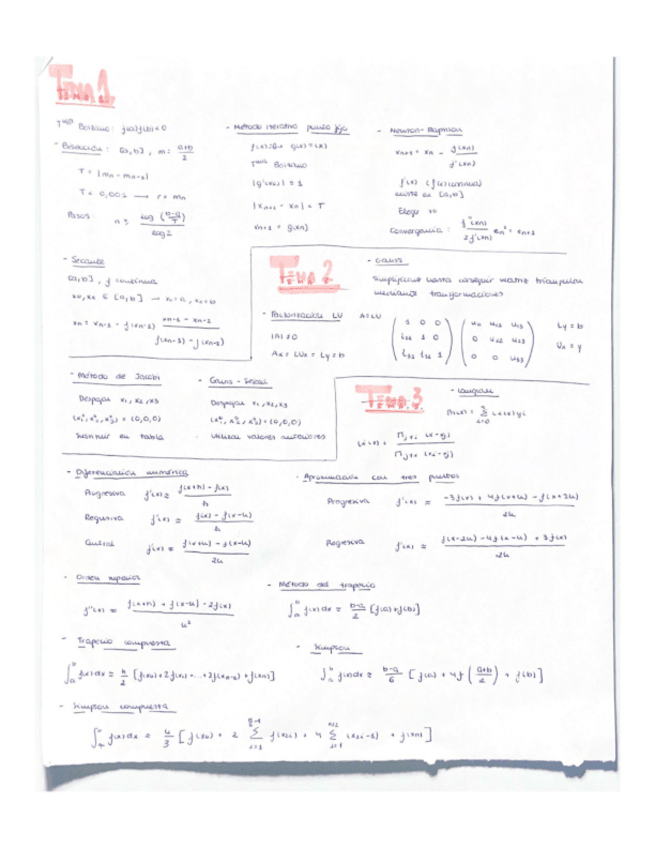 Tema 1
Tma Bolzano: f(a)f(b)<0
- Bisección: [a,b], m: a+b/2
T = |mn - mn-1|
T < 0,005 → r = mn
Pasos: n ≥ log (b-a/T) / log 2
- Método iterativo punto fijo
Tma Bolzano
|xn+1 - xn| = T
xn+1 = g(xn)
- Newton-Raphson
xn+1 = xn - f(xn)/f'(xn)
existe en [a,b]
Elegir x0
Convergencia: f''(xn)/2f'(xn) en² = en+1
- Secante
[a,b], f continua
x0, x1 ∈ [a,b] → x0=a, x1=b
xn = xn-1 - f(xn-1) xn-1 - xn-2 / f(xn-1) - f(xn-2)
Tema 2
- Gauss
Simplificar hasta conseguir matriz triangular
mediante transformaciones
- Factorización LU A=LU
|A| ≠ 0
Ax = LUx = Ly = b
( 1 0 0 ) ( u11 u12 u13 ) Ly = b
( l21 1 0 ) ( 0 u22 u23 ) Ux = y
( l31 l32 1 ) ( 0 0 u33 )
- Método de Jacobi
Despejar x1, x2, x3
(x1⁰, x2⁰, x3⁰) = (0,0,0)
Sustituir en tabla
- Gauss-Seidel
Despejar x1, x2, x3
(x1⁰, x2⁰, x3⁰) = (0,0,0)
Utilizar valores anteriores
Tema 3
- Lagrange
- Diferenciación numérica
Progresiva f'(x) ≈ f(x+h) - f(x) / h
Regresiva f'(x) ≈ f(x) - f(x-h) / h
Central f'(x) ≈ f(x+h) - f(x-h) / 2h
- Aproximación con tres puntos
Progresiva f'(x) ≈
Regresiva f'(x) ≈ f(x-2h) - 4f(x-h) + 3f(x) / 2h
- Orden superior
f''(x) ≈ f(x+h) + f(x-h) - 2f(x) / h²
- Método del trapecio
∫ f(x)dx ≈ b-a/2 [f(a)+f(b)]
- Trapecio compuesta
∫ f(x)dx ≈ h/2 [f(x0) + 2f(x1) + ... + 2f(xn-1) + f(xn)]
- Simpson
∫ f(x)dx ≈ b-a/6 [f(a) + 4f(a+b/2) + f(b)]
- Simpson compuesta